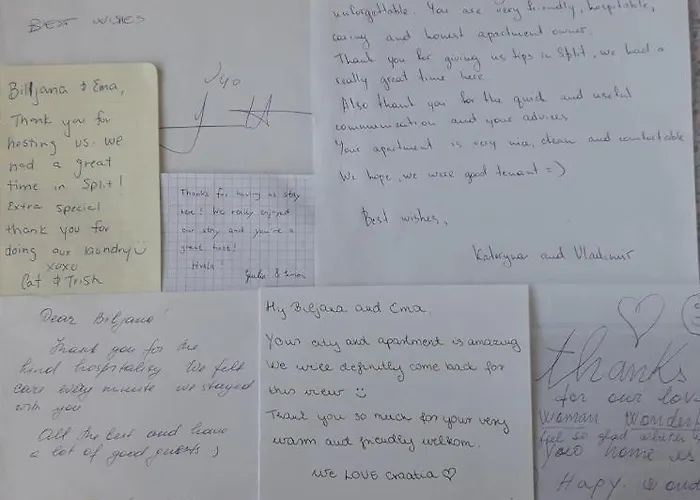 BEST WISHES
Billjana & Ema,
Thank you for
hosting us. We
had a great
time in Split!
Extra special
thank you for
doing our laundry
xoxo
Cat & Trish
Thanks for having us stay
here! We really enjoyed
our stay and you're a
great host!
Hvala!
unforgettable. You are very friendly, hospitable,
caring and honest apartment owner.
Thank you for giving us tips in Split, we had a
really great time here
Also thank you for the quick and useful
communication and your advices
Your apartment is very nice, clean and comfortable
We hope, we were good tenant =)
Best wishes,
Kateryna and Vladimir
Dear Biljana!
Thank you for the
kind hospitality. We felt
care every minute we stayed
with you
All the best and have
a lot of good guests ;)
Hy Biljana and Ema.
Your city and apartment is amazing
We will definitly come back for
this view
Thank you so much for your very
warm and friendly welkom.
We LOVE Croatia ♡
thanks
for our
woman
feel so glad
home is